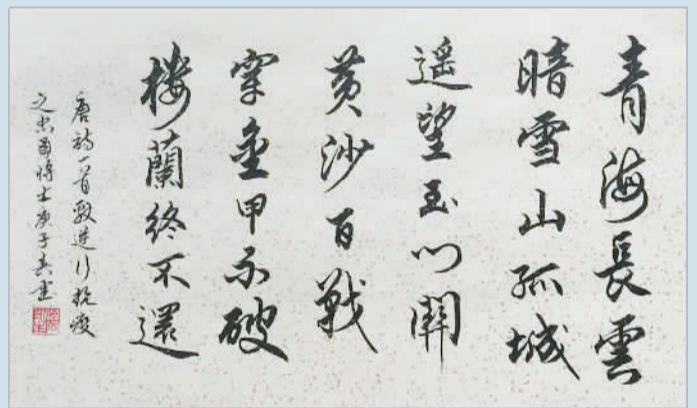 青海長雲
暗雪山孤城
遥望玉门關
黄沙百戰
穿金甲不破
樓蘭终不還
唐詩一首敬送行抗疫
之忠勇將士庚子春書